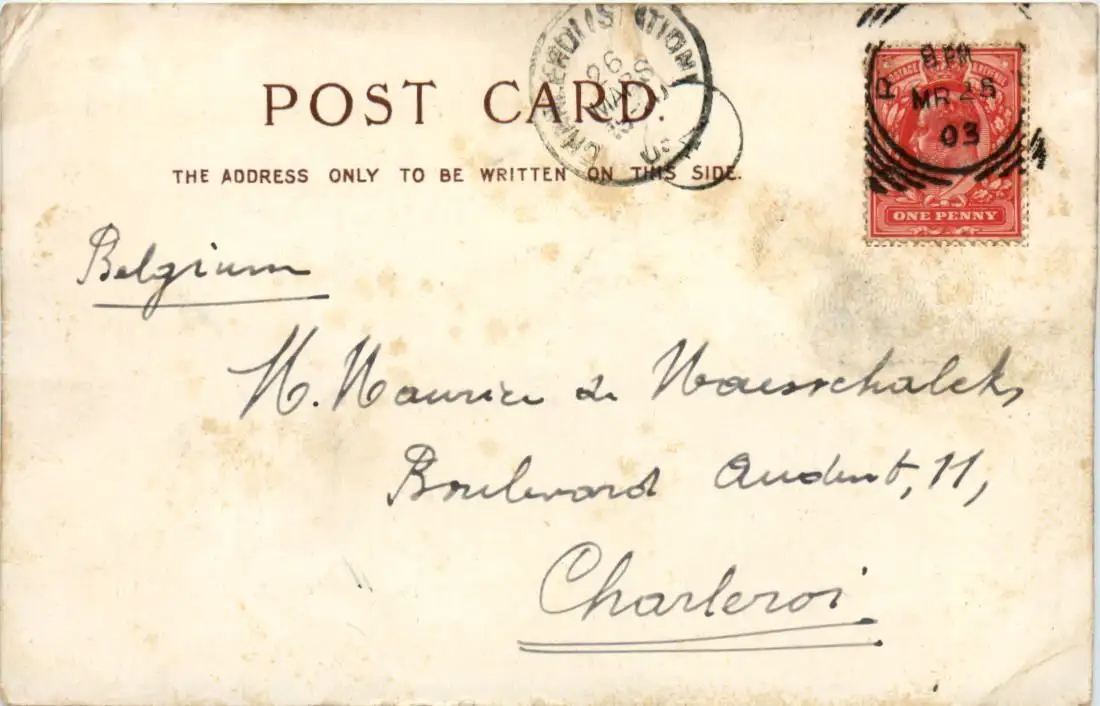 POST CARD.
THE ADDRESS ONLY TO BE WRITTEN ON THIS SIDE.
CHARLEROI (STATION)
26
MARS
03
8 PM
MR 25
03
ONE PENNY
Belgium
M. Maurice de Waesschalck,
Boulevard Audent, 11,
Charleroi